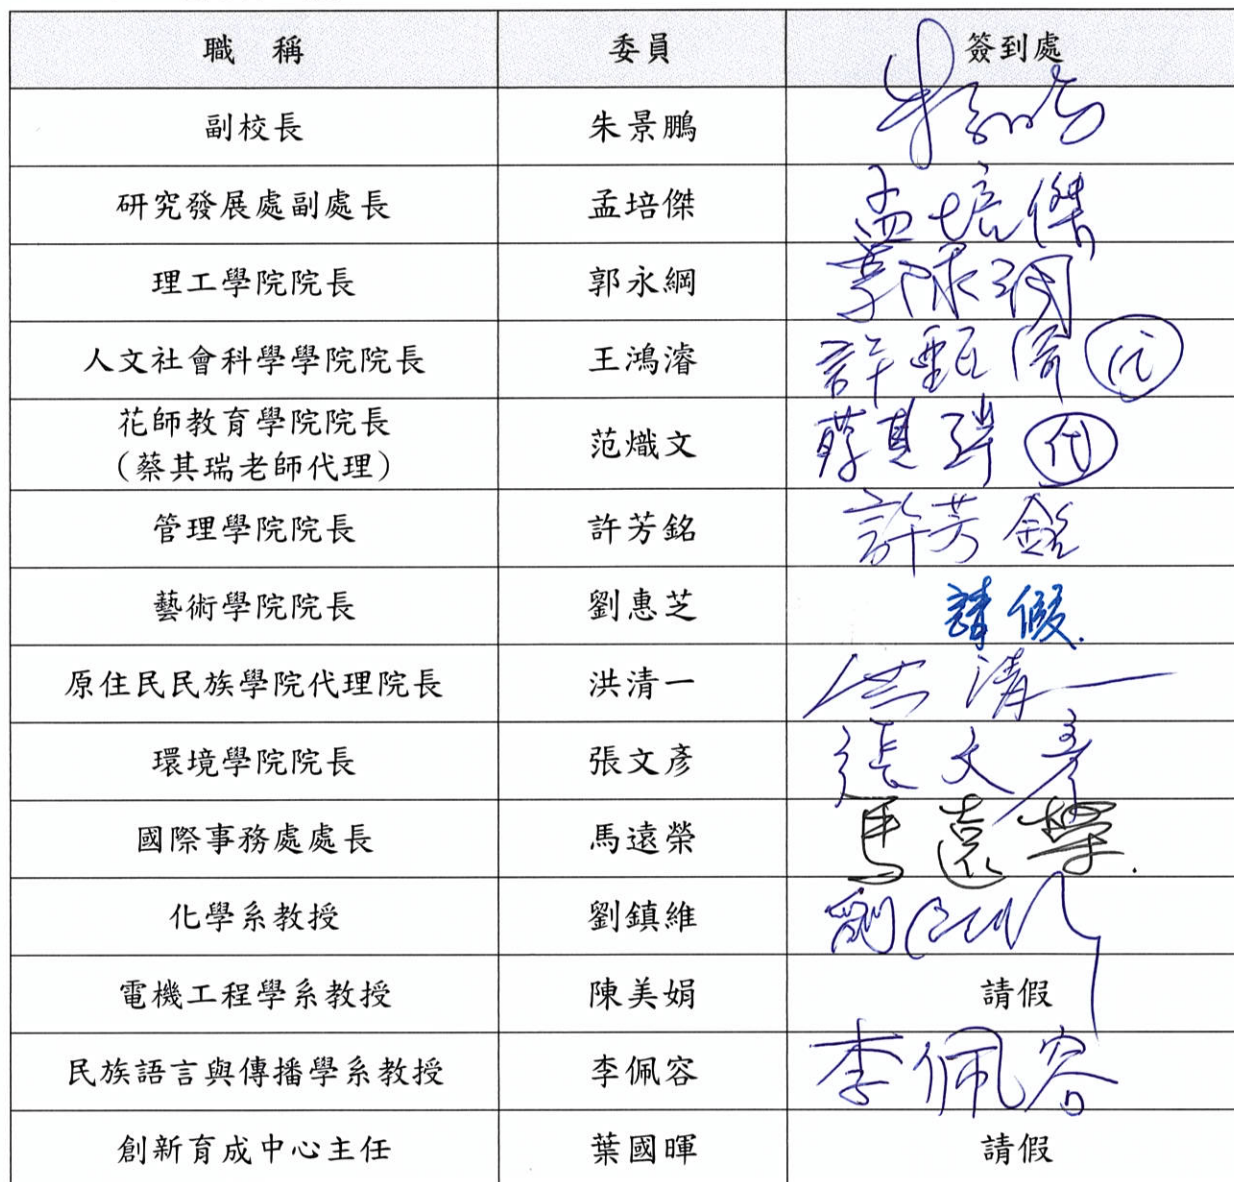 職 稱 委員 簽到處
副校長 朱景鵬
研究發展處副處長 孟培傑 孟培傑
理工學院院長 郭永綱
人文社會科學學院院長 王鴻濬 許甄倚 代
花師教育學院院長
(蔡其瑞老師代理) 范熾文 蔡其瑞 代
管理學院院長 許芳銘 許芳銘
藝術學院院長 劉惠芝 請假.
原住民民族學院代理院長 洪清一 洪清一
環境學院院長 張文彥 張文彥
國際事務處處長 馬遠榮 馬遠榮.
化學系教授 劉鎮維 劉
電機工程學系教授 陳美娟 請假
民族語言與傳播學系教授 李佩容 李佩容
創新育成中心主任 葉國暉 請假